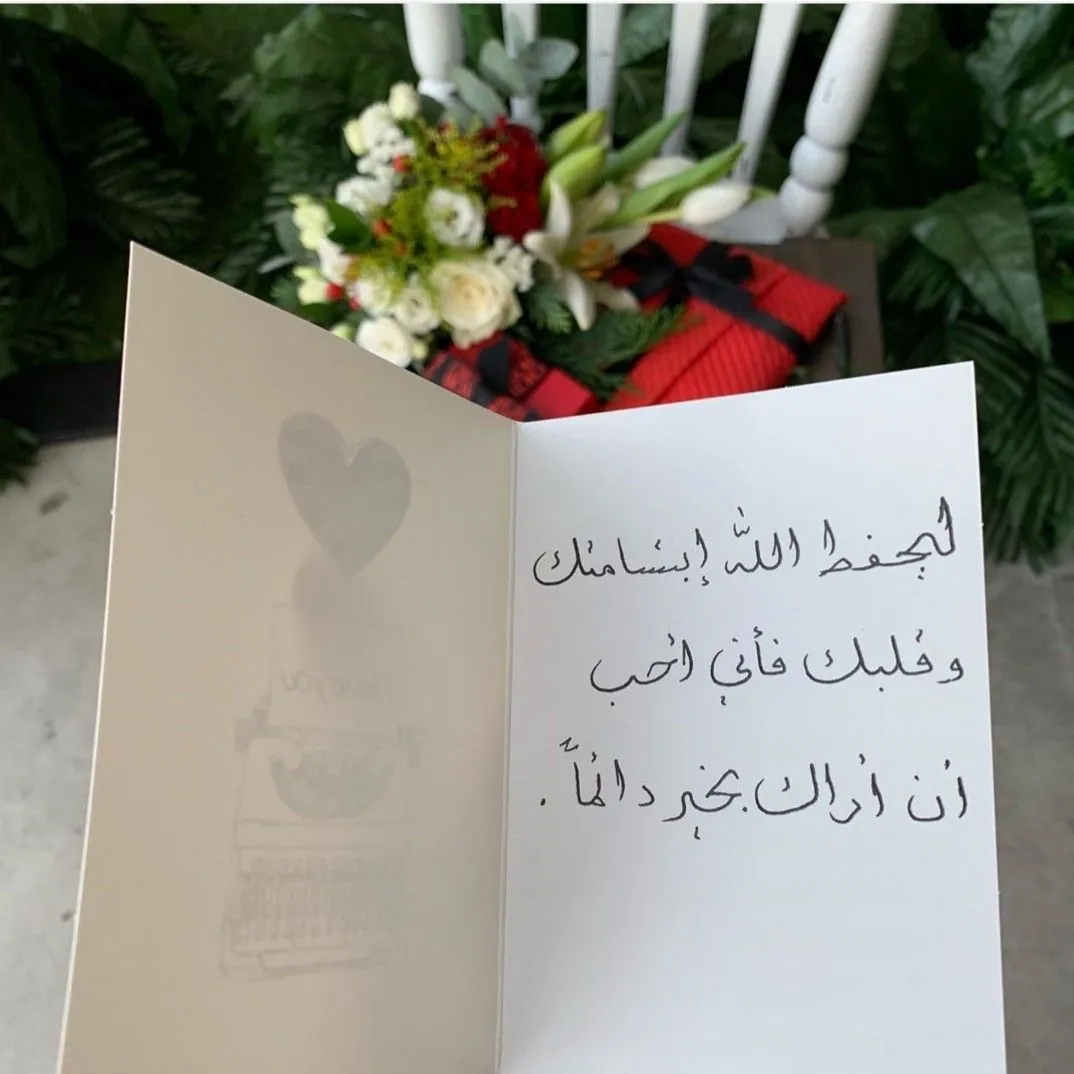 ليحفظ الله إبتسامتك
وقلبك فأني أحب
أن أراك بخير دائماً .
love you